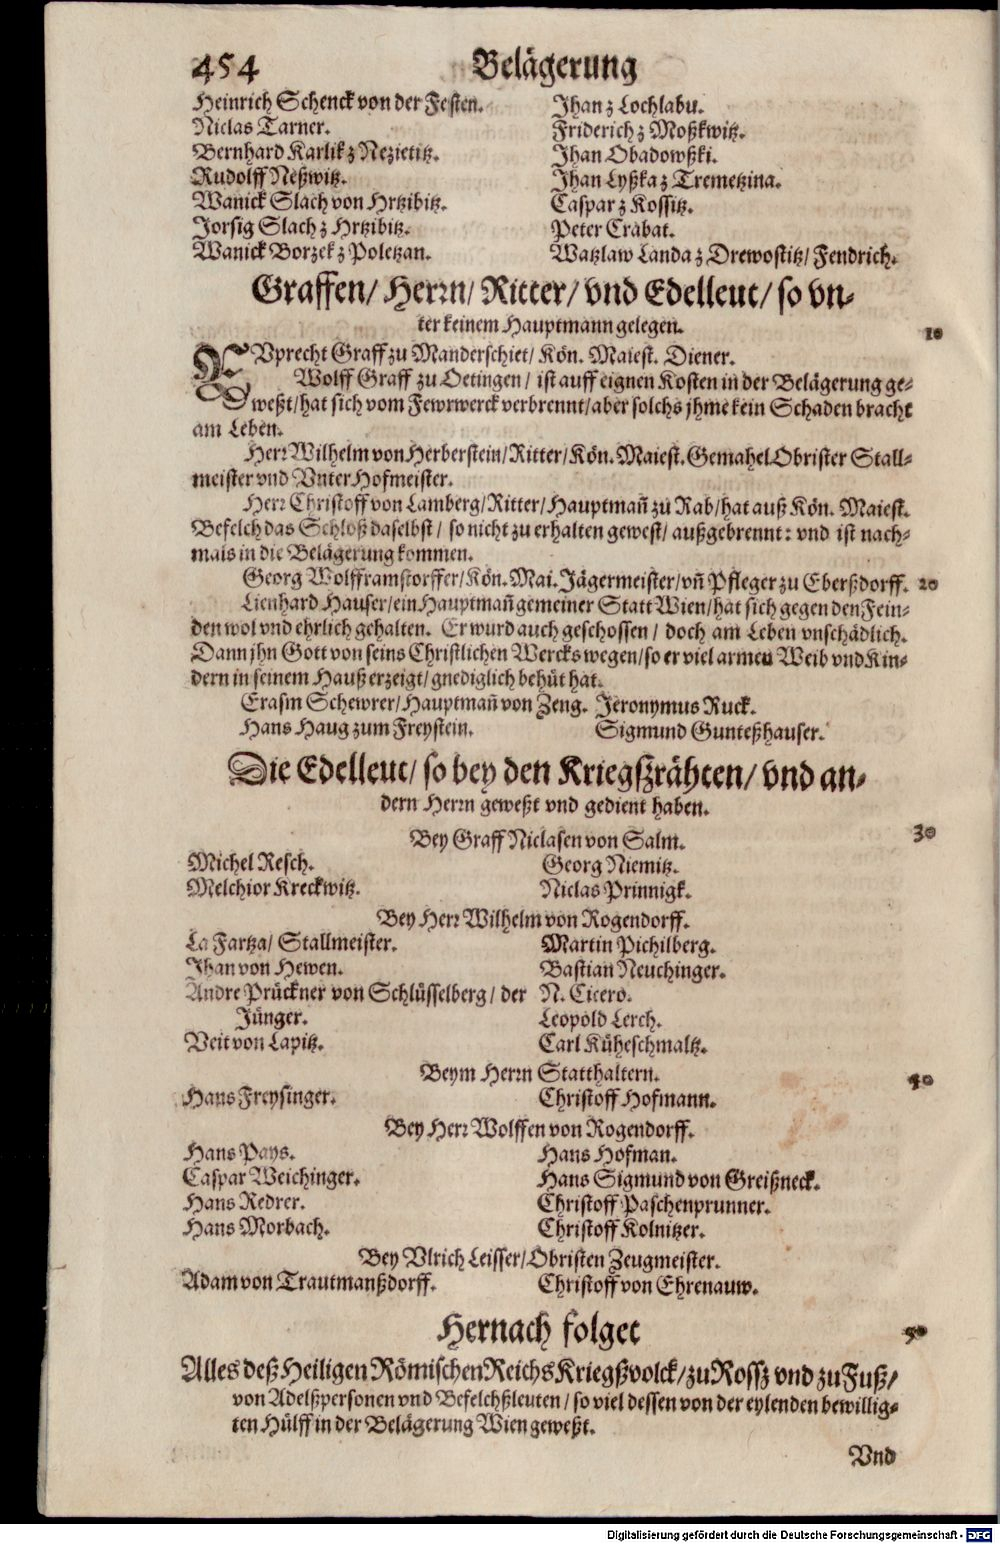 454 Belägerung
Heinrich Schenck von der Festen.
Niclas Tarner.
Bernhard Karlik z Nezietitz.
Rudolff Neßwitz.
Wanick Slach von Hrtzibitz.
Jorsig Slach z Hrtzibitz.
Wanick Borzek z Poletzan.
Jhan z Lochlabu.
Friderich z Moßkwitz.
Jhan Obadowßki.
Jhan Lyßka z Tremetzina.
Caspar z Kossitz.
Peter Crabat.
Watzlaw Landa z Drewostitz/ Fendrich.
Graffen/ Herrn/ Ritter/ vnd Edelleut/ so vn-
ter keinem Hauptmann gelegen.
10
RVprecht Graff zu Manderschiet/ Kön. Maiest. Diener.
Wolff Graff zu Oetingen/ ist auff eignen Kosten in der Belägerung ge-
weßt/ hat sich vom Fewrwerck verbrennt/ aber solchs jhme kein Schaden bracht
am Leben.
Herr Wilhelm von Herberstein/ Ritter/ Kön. Maiest. Gemahel Obrister Stall-
meister vnd Vnter Hofmeister.
Herr Christoff von Lamberg/ Ritter/ Hauptman̄ zu Rab/ hat auß Kön. Maiest.
Befelch das Schloß daselbst/ so nicht zu erhalten gewest/ außgebrennt: vnd ist nach-
mals in die Belägerung kommen.
Georg Wolfframstorffer/ Kön. Mai. Jägermeister/ vn̄ Pfleger zu Eberßdorff. 20
Lienhard Hauser/ ein Hauptman̄ gemeiner Statt Wien/ hat sich gegen den Fein-
den wol vnd ehrlich gehalten. Er wurd auch geschossen/ doch am Leben vnschädlich.
Dann jhn Gott von seins Christlichen Wercks wegen/ so er viel armen Weib vnd Kin-
dern in seinem Hauß erzeigt/ gnediglich behüt hat.
Erasm Schewrer/ Hauptman̄ von Zeng. Jeronymus Ruck.
Hans Haug zum Freystein. Sigmund Gunteßhauser.
Die Edelleut/ so bey den Kriegßrähten/ vnd an-
dern Herrn geweßt vnd gedient haben.
30
Bey Graff Niclasen von Salm.
Michel Resch. Georg Niemitz.
Melchior Kreckwitz. Niclas Prinnigk.
Bey Herr Wilhelm von Rogendorff.
La Fartza/ Stallmeister. Martin Pichilberg.
Jhan von Hewen. Bastian Neuchinger.
Andre Prückner von Schlüsselberg/ der N. Cicero.
Jünger. Leopold Lerch.
Veit von Lapitz. Carl Küheschmaltz.
Beym Herrn Statthaltern.
40
Hans Freysinger. Christoff Hofmann.
Bey Herr Wolffen von Rogendorff.
Hans Pays. Hans Hofman.
Caspar Weichinger. Hans Sigmund von Greißneck.
Hans Redrer. Christoff Paschenprunner.
Hans Morbach. Christoff Kolnitzer.
Bey Vlrich Leisser/ Obristen Zeugmeister.
Adam von Trautmanßdorff. Christoff von Ehrenauw.
Hernach folget
50
Alles deß Heiligen Römischen Reichs Kriegßvolck/ zu Rossz vnd zu Fuß/
von Adelßpersonen vnd Befelchßleuten/ so viel dessen von der eylenden bewillig-
ten Hülff in der Belägerung Wien geweßt.
Vnd
Digitalisierung gefördert durch die Deutsche Forschungsgemeinschaft - DFG